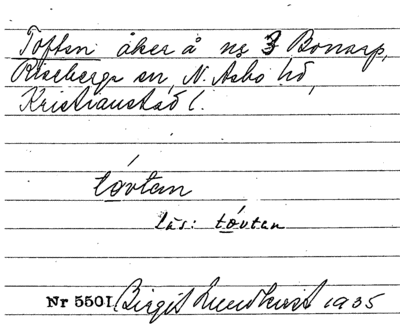 Toften åker å nr 3 Bonarp,
Riseberga sn, N. Åsbo hd,
Kristianstad l.
tóvtan
läs: tóvtan
Nr 5501 Birgit Lundkvist 1935